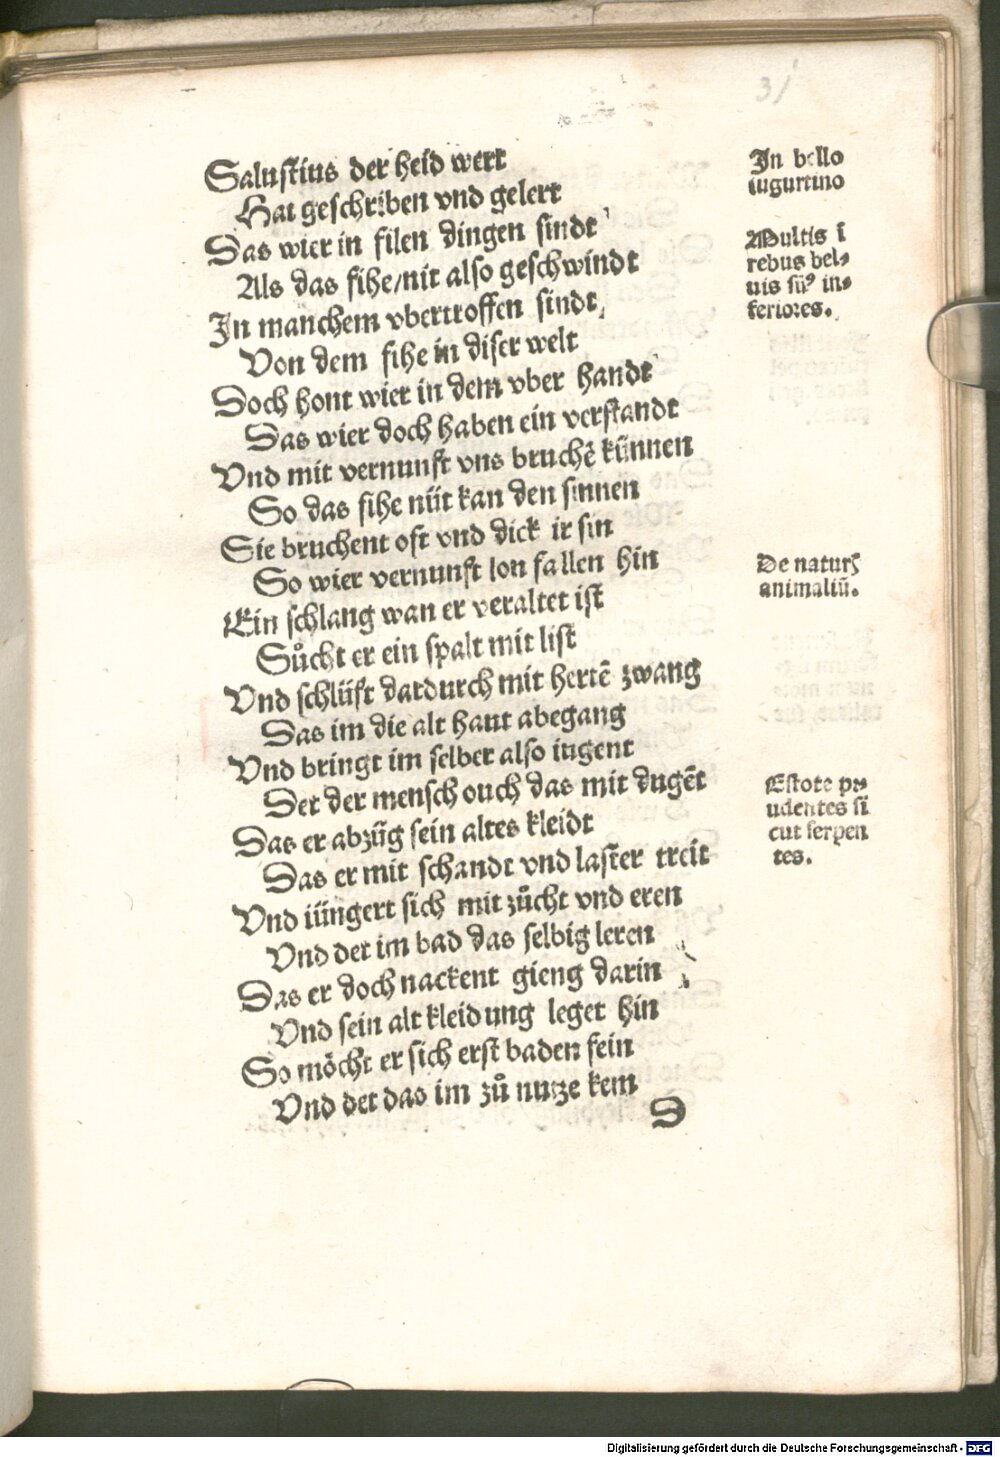 31
Salustius der heid wert
Hat geschriben vnd gelert
Das wier in filen dingen sindt
Als das fihe/nit also geschwindt
In manchem vbertroffen sindt,
Von dem fihe in diser welt
Doch hont wier in dem vber handt
Das wier doch haben ein verstandt
Vnd mit vernunft vns bruchē künnen
So das fihe nüt kan den sinnen
Sie bruchent oft vnd dick ir sin
So wier vernunft lon fallen hin
Ein schlang wan er veraltet ist
Sůcht er ein spalt mit list
Vnd schlüft dardurch mit hertē zwang
Das im die alt haut abegang
Vnd bringt im selber also iugent
Det der mensch ouch das mit dugēt
Das er abzüg sein altes kleidt
Das er mit schandt vnd laster treit
Vnd iüngert sich mit zůcht vnd eren
Vnd det im bad das selbig leren
Das er doch nackent gieng darin
Vnd sein alt kleidung leget hin
So möcht er sich erst baden fein
Vnd det das im zů nutze kem
D
In bello
iugurtino
Multis ī
rebus bel⸗
uis sūꝰ in⸗
feriores.
De naturꝭ
animaliū.
Estote pru
udentes si
cut serpen
tes.
Digitalisierung gefördert durch die Deutsche Forschungsgemeinschaft - DFG